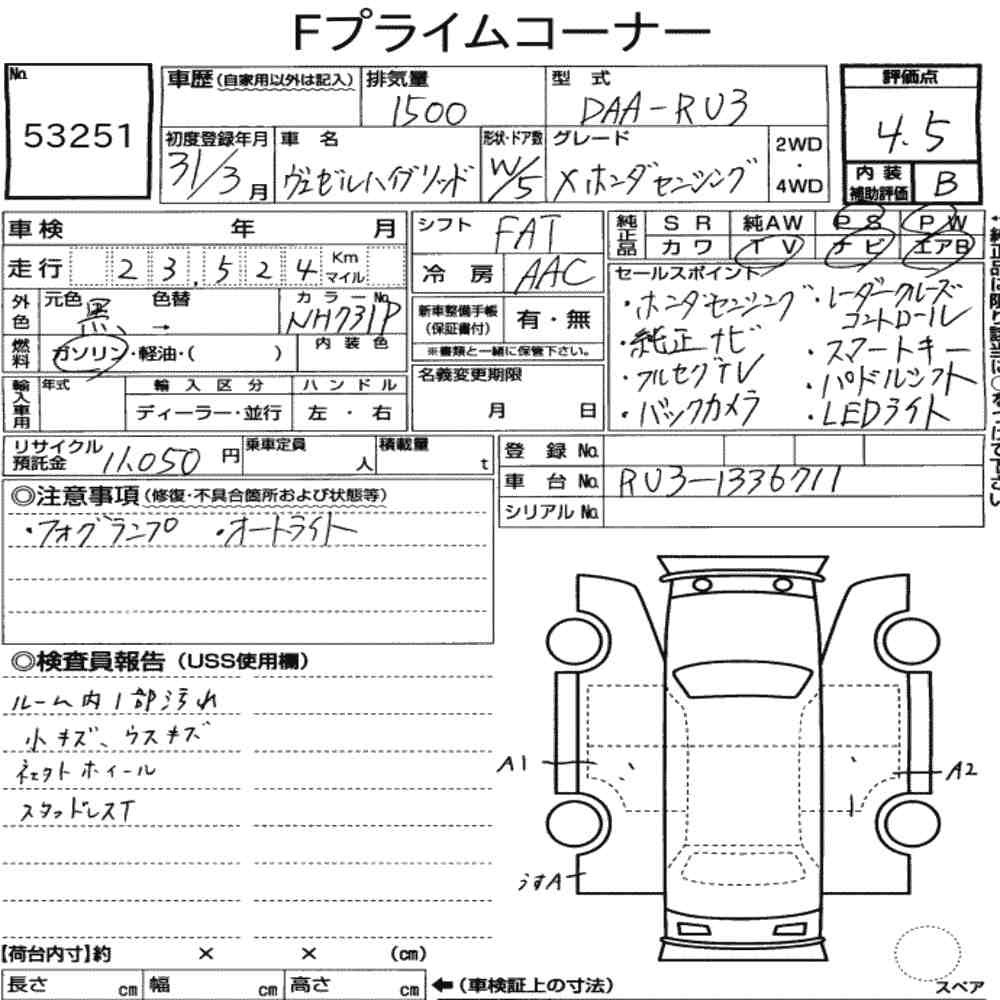 Fプライムコーナー
No.
53251
車歴(自家用以外は記入)
排気量
1500
型 式
DAA-RU3
評価点
4.5
初度登録年月
31/3月
車 名
ヴェゼルハイブリッド
形状・ドア数
W/5
グレード
Xホンダセンシング
2WD
・
4WD
内 装
補助評価
B
車検 年 月
シフト
FAT
純正品
SR 純AW PS PW
カワ TV ナビ エアB
走行 23,524 Km マイル
冷 房
AAC
セールスポイント
・ホンダセンシング ・レーダークルーズコントロール
・純正ナビ ・スマートキー
・フルセグTV ・パドルシフト
・バックカメラ ・LEDライト
外色
元色 色替
黒、→
カラーNo.
NH731P
新車整備手帳
(保証書付)
有・無
※書類と一緒に保管下さい。
燃料
ガソリン・軽油・( )
内 装 色
輸入車用
年式
輸 入 区 分
ディーラー・並行
ハ ン ド ル
左 ・ 右
名義変更期限
月 日
←純正品に限り該当に○をつけて下さい
リサイクル
預託金
11,050 円
乗車定員
人
積載量
t
登 録 No.
車 台 No. RU3-1336711
シリアル No.
◎注意事項(修復・不具合箇所および状態等)
・フォグランプ ・オートライト
◎検査員報告(USS使用欄)
ルーム内1部汚れ
小キズ、ウスキズ
社外ホイール
スタッドレスT
A1
A2
うすA
【荷台内寸】約 × × (cm)
長さ cm 幅 cm 高さ cm
←(車検証上の寸法)
スペア